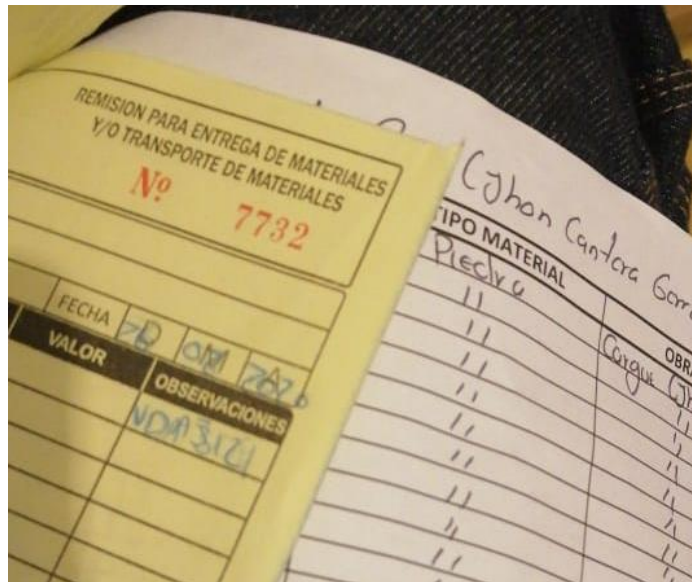 REMISION PARA ENTREGA DE MATERIALES
Y/O TRANSPORTE DE MATERIALES
Nº 7732
FECHA 2020
VALOR OBSERVACIONES
(Jhon Cantera
TIPO MATERIAL OBRA
Piedra Cargue (Jh
" "
" "
" "
" "
" "
" "
" "
" "